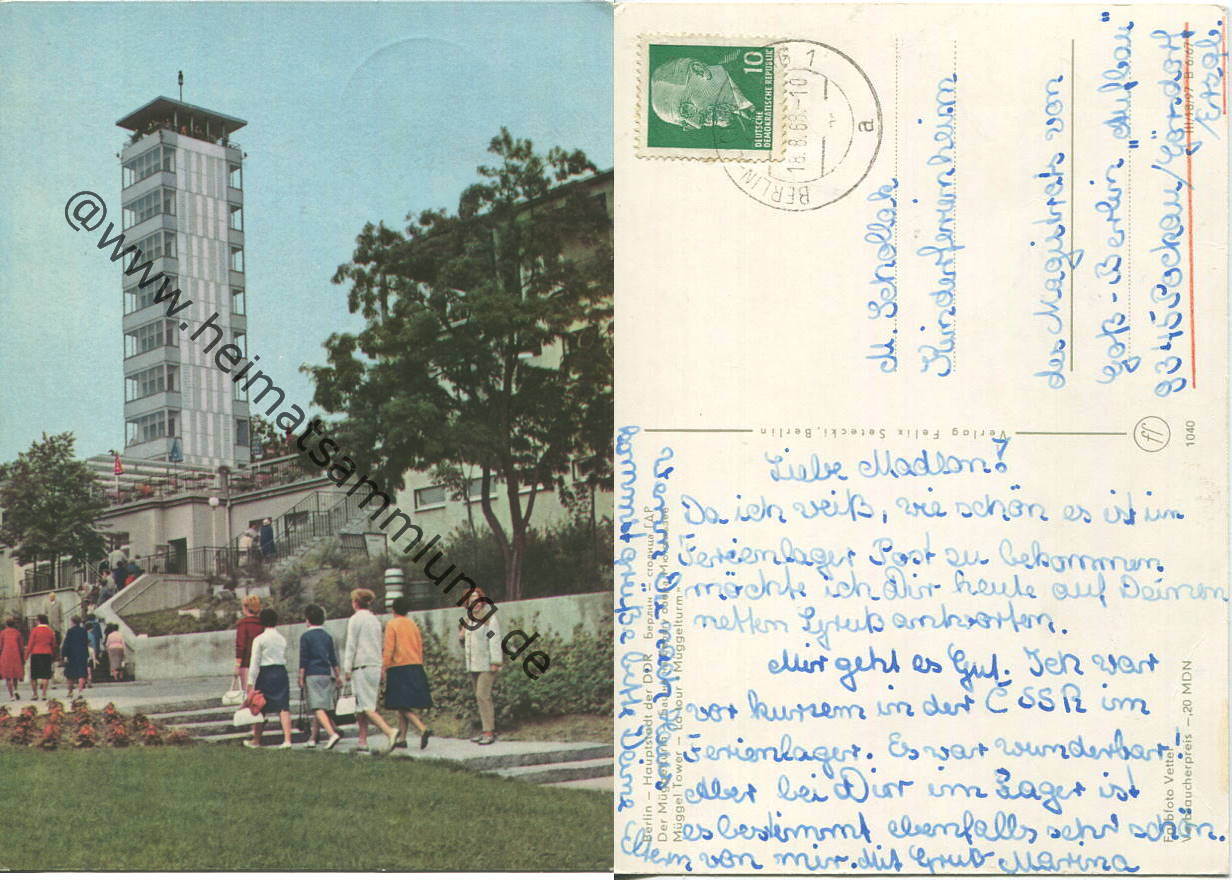 @www.heimatsammlung.de
DEUTSCHE
DEMOKRATISCHE REPUBLIK
10
BERLIN
18.8.68.-10
1
a
M. Schollak
Kinderferienheim
des Magistrats von
Groß-Berlin "Aufbau"
9345 Pockau/Görsdorf
/Erzgb.
Verlag Felix Setecki, Berlin
1040
Liebe Madlon!
Da ich weiß, wie schön es ist im
Ferienlager Post zu bekommen
möchte ich Dir heute auf Deinen
netten Gruß antworten.
Mir geht es Gut. Ich war
vor kurzem in der ČSSR im
Ferienlager. Es war wunderbar!
Aber bei Dir im Lager ist
es bestimmt ebenfalls sehr schön.
von mir. Mit Gruß Marina
grüße bitte Deine
Eltern
Berlin – Hauptstadt der DDR Берлин – столица ГДР
Müggel Tower – La tour «Müggelturm»
Farbfoto Vetter
Verbraucherpreis –,20 MDN